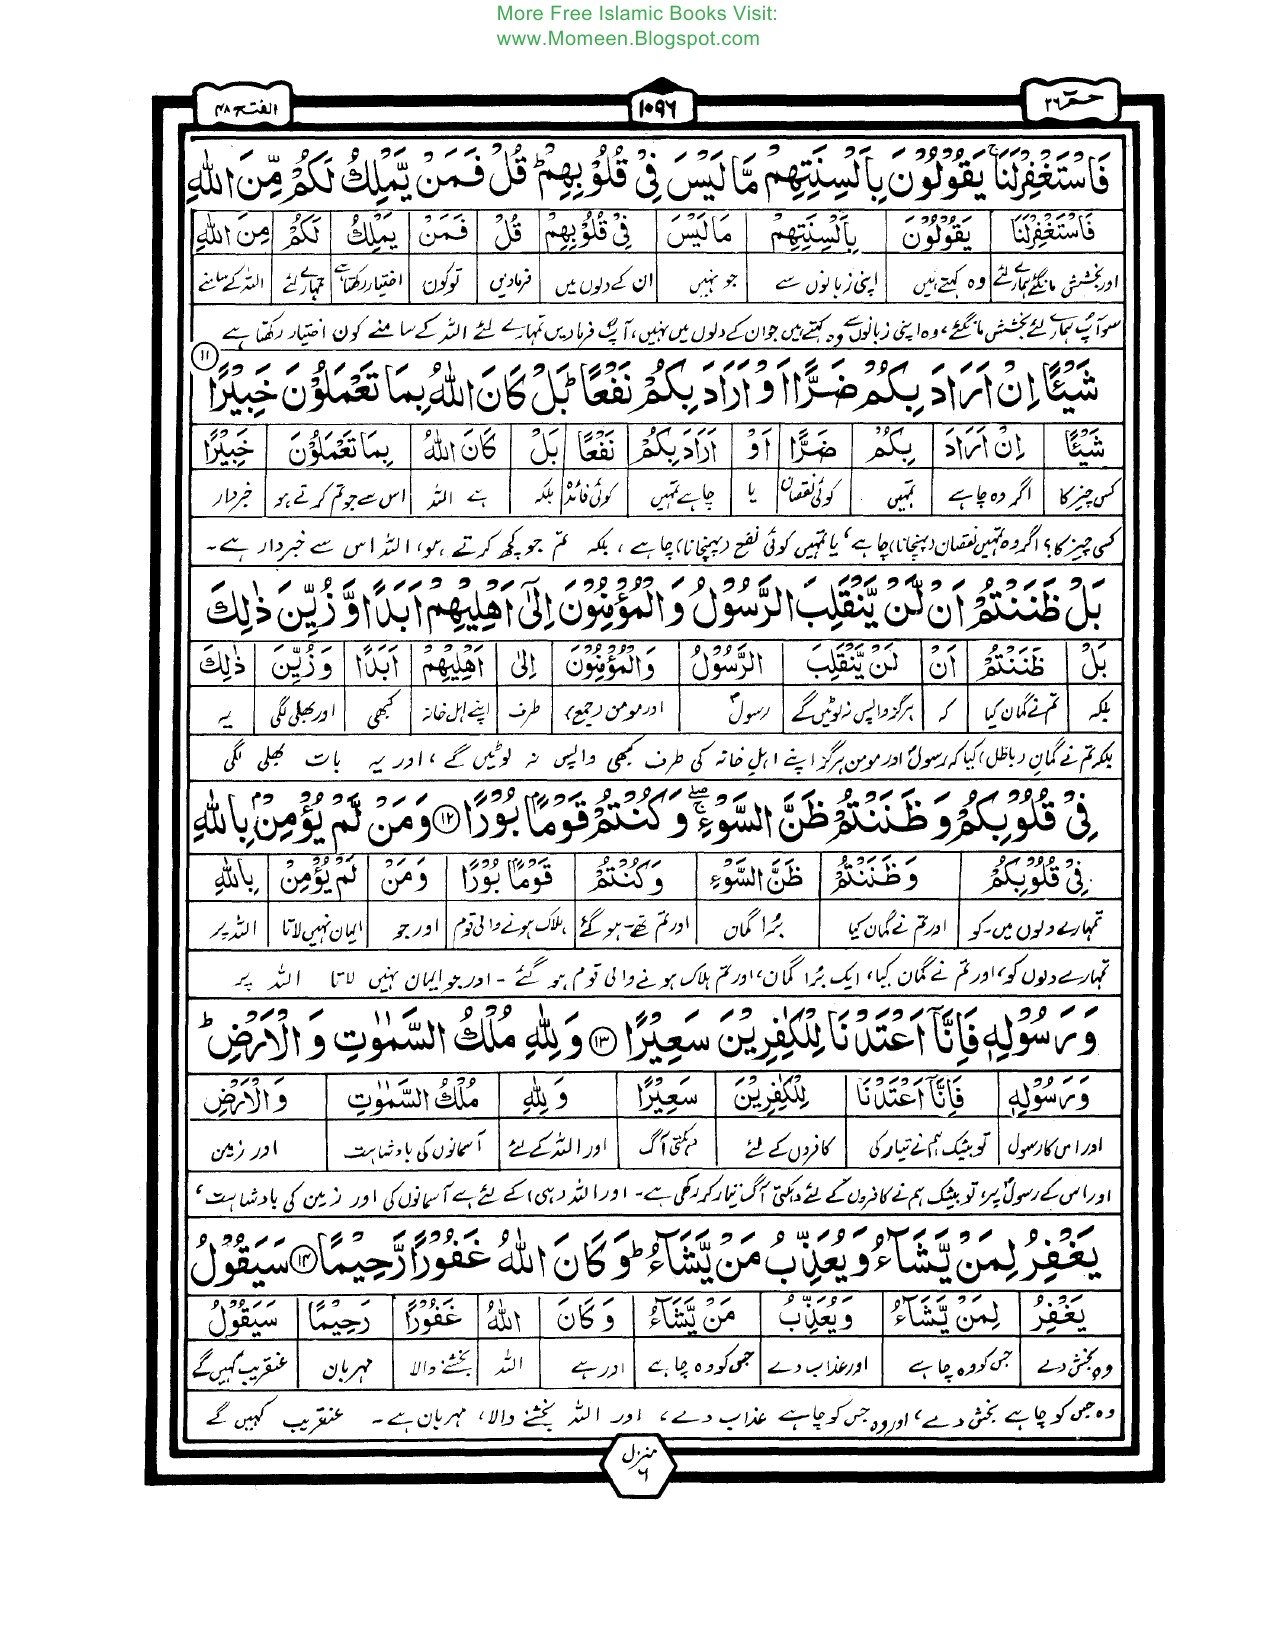 More Free Islamic Books Visit:
www.Momeen.Blogspot.com
حٰمٓ ۲۶
۱۰۹۶
الفتح ۴۸
فَاسْتَغْفِرْلَنَا ۚ يَقُوْلُوْنَ بِاَلْسِنَتِهِمْ مَّا لَيْسَ فِيْ قُلُوْبِهِمْ ؕ قُلْ فَمَنْ يَّمْلِكُ لَكُمْ مِّنَ اللّٰهِ
فَاسْتَغْفِرْلَنَا يَقُوْلُوْنَ بِاَلْسِنَتِهِمْ مَا لَيْسَ فِيْ قُلُوْبِهِمْ قُلْ فَمَنْ يَمْلِكُ لَكُمْ مِنَ اللّٰهِ
اور بخشش مانگئے ہمارے لئے وہ کہتے ہیں اپنی زبانوں سے جو نہیں ان کے دلوں میں فرمادیں تو کون اختیار رکھتا ہے تمہارے لئے اللہ کے سامنے
سو آپ ہمارے لئے بخشش مانگئے، وہ اپنی زبانوں سے وہ کہتے ہیں جو ان کے دلوں میں نہیں، آپ فرمادیں تمہارے لئے اللہ کے سامنے کون اختیار رکھتا ہے
شَيْـًٔا اِنْ اَرَادَ بِكُمْ ضَرًّا اَوْ اَرَادَ بِكُمْ نَفْعًا ؕ بَلْ كَانَ اللّٰهُ بِمَا تَعْمَلُوْنَ خَبِيْرًا ۱۱
شَيْـًٔا اِنْ اَرَادَ بِكُمْ ضَرًّا اَوْ اَرَادَ بِكُمْ نَفْعًا بَلْ كَانَ اللّٰهُ بِمَا تَعْمَلُوْنَ خَبِيْرًا
کسی چیز کا اگر وہ چاہے تمہیں کوئی نقصان یا چاہے تمہیں کوئی فائدہ بلکہ ہے اللہ اس سے جو تم کرتے ہو خبردار
کسی چیز کا؟ اگر وہ تمہیں نقصان (پہنچانا) چاہے، یا تمہیں کوئی نفع (پہنچانا) چاہے، بلکہ تم جو کچھ کرتے ہو، اللہ اس سے خبردار ہے۔
بَلْ ظَنَنْتُمْ اَنْ لَّنْ يَّنْقَلِبَ الرَّسُوْلُ وَالْمُؤْمِنُوْنَ اِلٰٓى اَهْلِيْهِمْ اَبَدًا وَّ زُيِّنَ ذٰلِكَ
بَلْ ظَنَنْتُمْ اَنْ لَنْ يَّنْقَلِبَ الرَّسُوْلُ وَالْمُؤْمِنُوْنَ اِلٰى اَهْلِيْهِمْ اَبَدًا وَ زُيِّنَ ذٰلِكَ
بلکہ تم نے گمان کیا کہ ہرگز واپس نہ لوٹیں گے رسولؐ اور مومن (جمع) طرف اپنے اہل خانہ کبھی اور بھلی لگی یہ
بلکہ تم نے گمان (باطل) کیا کہ رسولؐ اور مومن ہرگز اپنے اہل خانہ کی طرف کبھی واپس نہ لوٹیں گے، اور یہ بات بھلی لگی
فِيْ قُلُوْبِكُمْ وَ ظَنَنْتُمْ ظَنَّ السَّوْءِ ۖۚ وَكُنْتُمْ قَوْمًۢا بُوْرًا ۱۲ وَ مَنْ لَّمْ يُؤْمِنْۢ بِاللّٰهِ
فِيْ قُلُوْبِكُمْ وَ ظَنَنْتُمْ ظَنَّ السَّوْءِ وَكُنْتُمْ قَوْمًۢا بُوْرًا وَ مَنْ لَمْ يُؤْمِنْ بِاللّٰهِ
تمہارے دلوں میں۔کو اور تم نے گمان کیا بُرا گمان اور تم تھے۔ہوگئے ہلاک ہونے والی قوم اور جو ایمان نہیں لاتا اللہ پر
تمہارے دلوں کو، اور تم نے گمان کیا، ایک بُرا گمان، اور تم ہلاک ہونے والی قوم ہو گئے ۔ اور جو ایمان نہیں لاتا اللہ پر
وَ رَسُوْلِهٖ فَاِنَّآ اَعْتَدْنَا لِلْكٰفِرِيْنَ سَعِيْرًا ۱۳ وَ لِلّٰهِ مُلْكُ السَّمٰوٰتِ وَ الْاَرْضِ ؕ
وَ رَسُوْلِهٖ فَاِنَّآ اَعْتَدْنَا لِلْكٰفِرِيْنَ سَعِيْرًا وَ لِلّٰهِ مُلْكُ السَّمٰوٰتِ وَ الْاَرْضِ
اور اس کا رسول تو بیشک ہم نے تیار کی کافروں کے لئے دہکتی آگ اور اللہ کے لئے آسمانوں کی بادشاہت اور زمین
اور اس کے رسولؐ پر، تو بیشک ہم نے کافروں کے لئے دہکتی آگ تیار کر رکھی ہے۔ اور اللہ (ہی) کے لئے ہے آسمانوں کی اور زمین کی بادشاہت،
يَغْفِرُ لِمَنْ يَّشَآءُ وَ يُعَذِّبُ مَنْ يَّشَآءُ ؕ وَ كَانَ اللّٰهُ غَفُوْرًا رَّحِيْمًا ۱۴ سَيَقُوْلُ
يَغْفِرُ لِمَنْ يَّشَآءُ وَ يُعَذِّبُ مَنْ يَّشَآءُ وَ كَانَ اللّٰهُ غَفُوْرًا رَحِيْمًا سَيَقُوْلُ
وہ بخش دے جس کو وہ چاہے اور عذاب دے جس کو وہ چاہے اور ہے اللہ بخشنے والا مہربان عنقریب کہیں گے
وہ جس کو چاہے بخش دے، اور وہ جس کو چاہے عذاب دے، اور اللہ بخشنے والا، مہربان ہے۔ عنقریب کہیں گے
منزل
۶